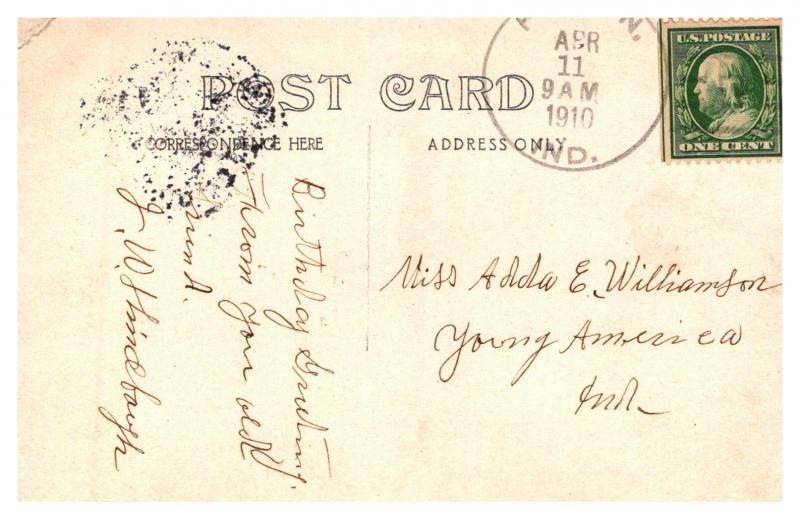 POST CARD
CORRESPONDENCE HERE
ADDRESS ONLY
APR
11
9 AM
1910
IND.
U.S. POSTAGE
ONE CENT
Birthday Greeting.
From your old
friend.
J. W.
Miss Adda E. Williamson
Young America
Ind.